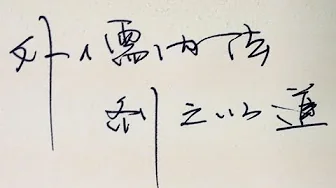 外儒内法
剂之以道